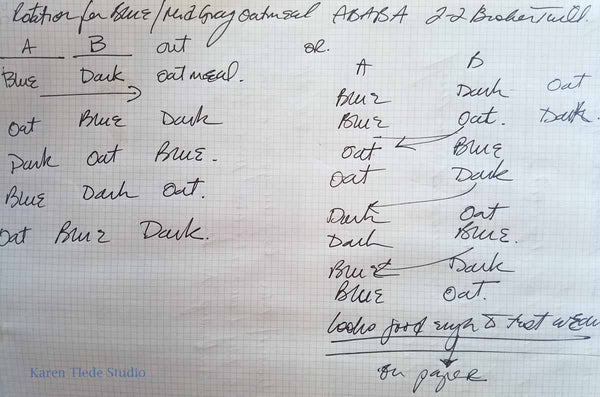 Rotation for Blue/Mid Gray Oatmeal ABABA 2-2 Broken Twill.
A B out
Blue Dark oatmeal.
Oat Blue Dark
Dark Oat Blue.
Blue Dark Oat.
Oat Blue Dark.
or.
A B
Blue Dark Oat
Blue Oat. Dark.
Oat Blue
Oat Dark
Dark Oat
Dark Blue.
Blue Dark
Blue Oat.
looks good enough to test weave
on paper
Karen Tiede Studio